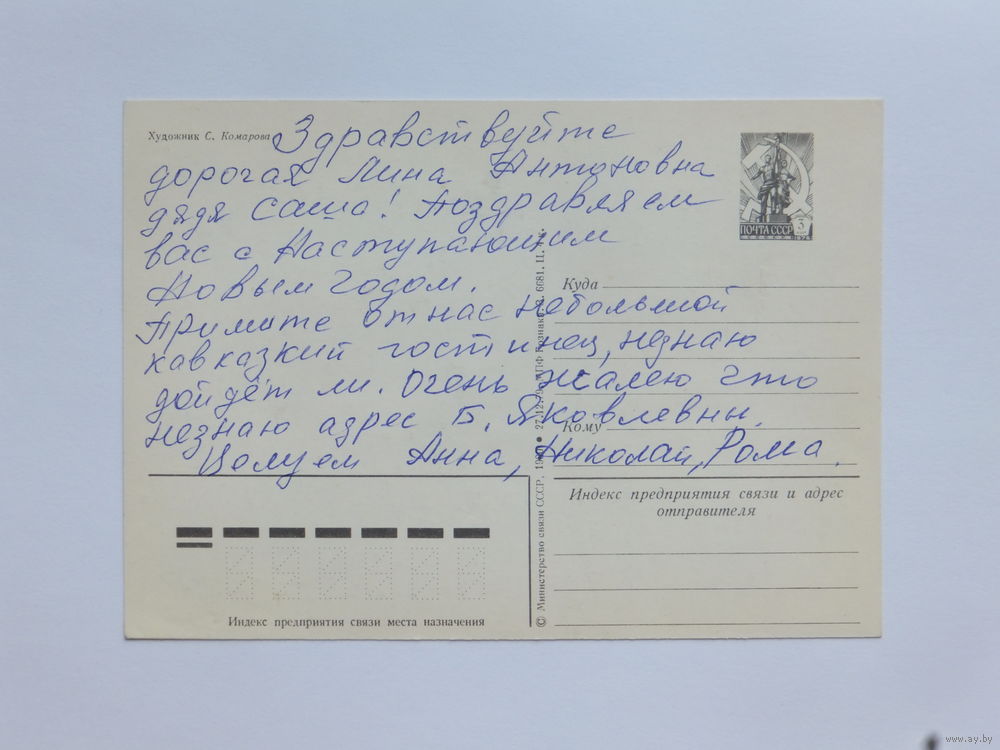 Художник С. Комарова
Здравствуйте
дорогая Лина Антоновна
дядя Саша! Поздравляем
вас с Наступающим
Новым годом.
Примите от нас небольшой
кавказкий гостинец, незнаю
дойдёт ли. Очень жалею что
незнаю адрес Б. Яковлевны.
Целуем Анна, Николай, Рома.
ПОЧТА СССР 3
Куда
Кому
Индекс предприятия связи и адрес
отправителя
© Министерство связи СССР.
27.12.79
Гознака.
6681.
Индекс предприятия связи места назначения
www.ay.by